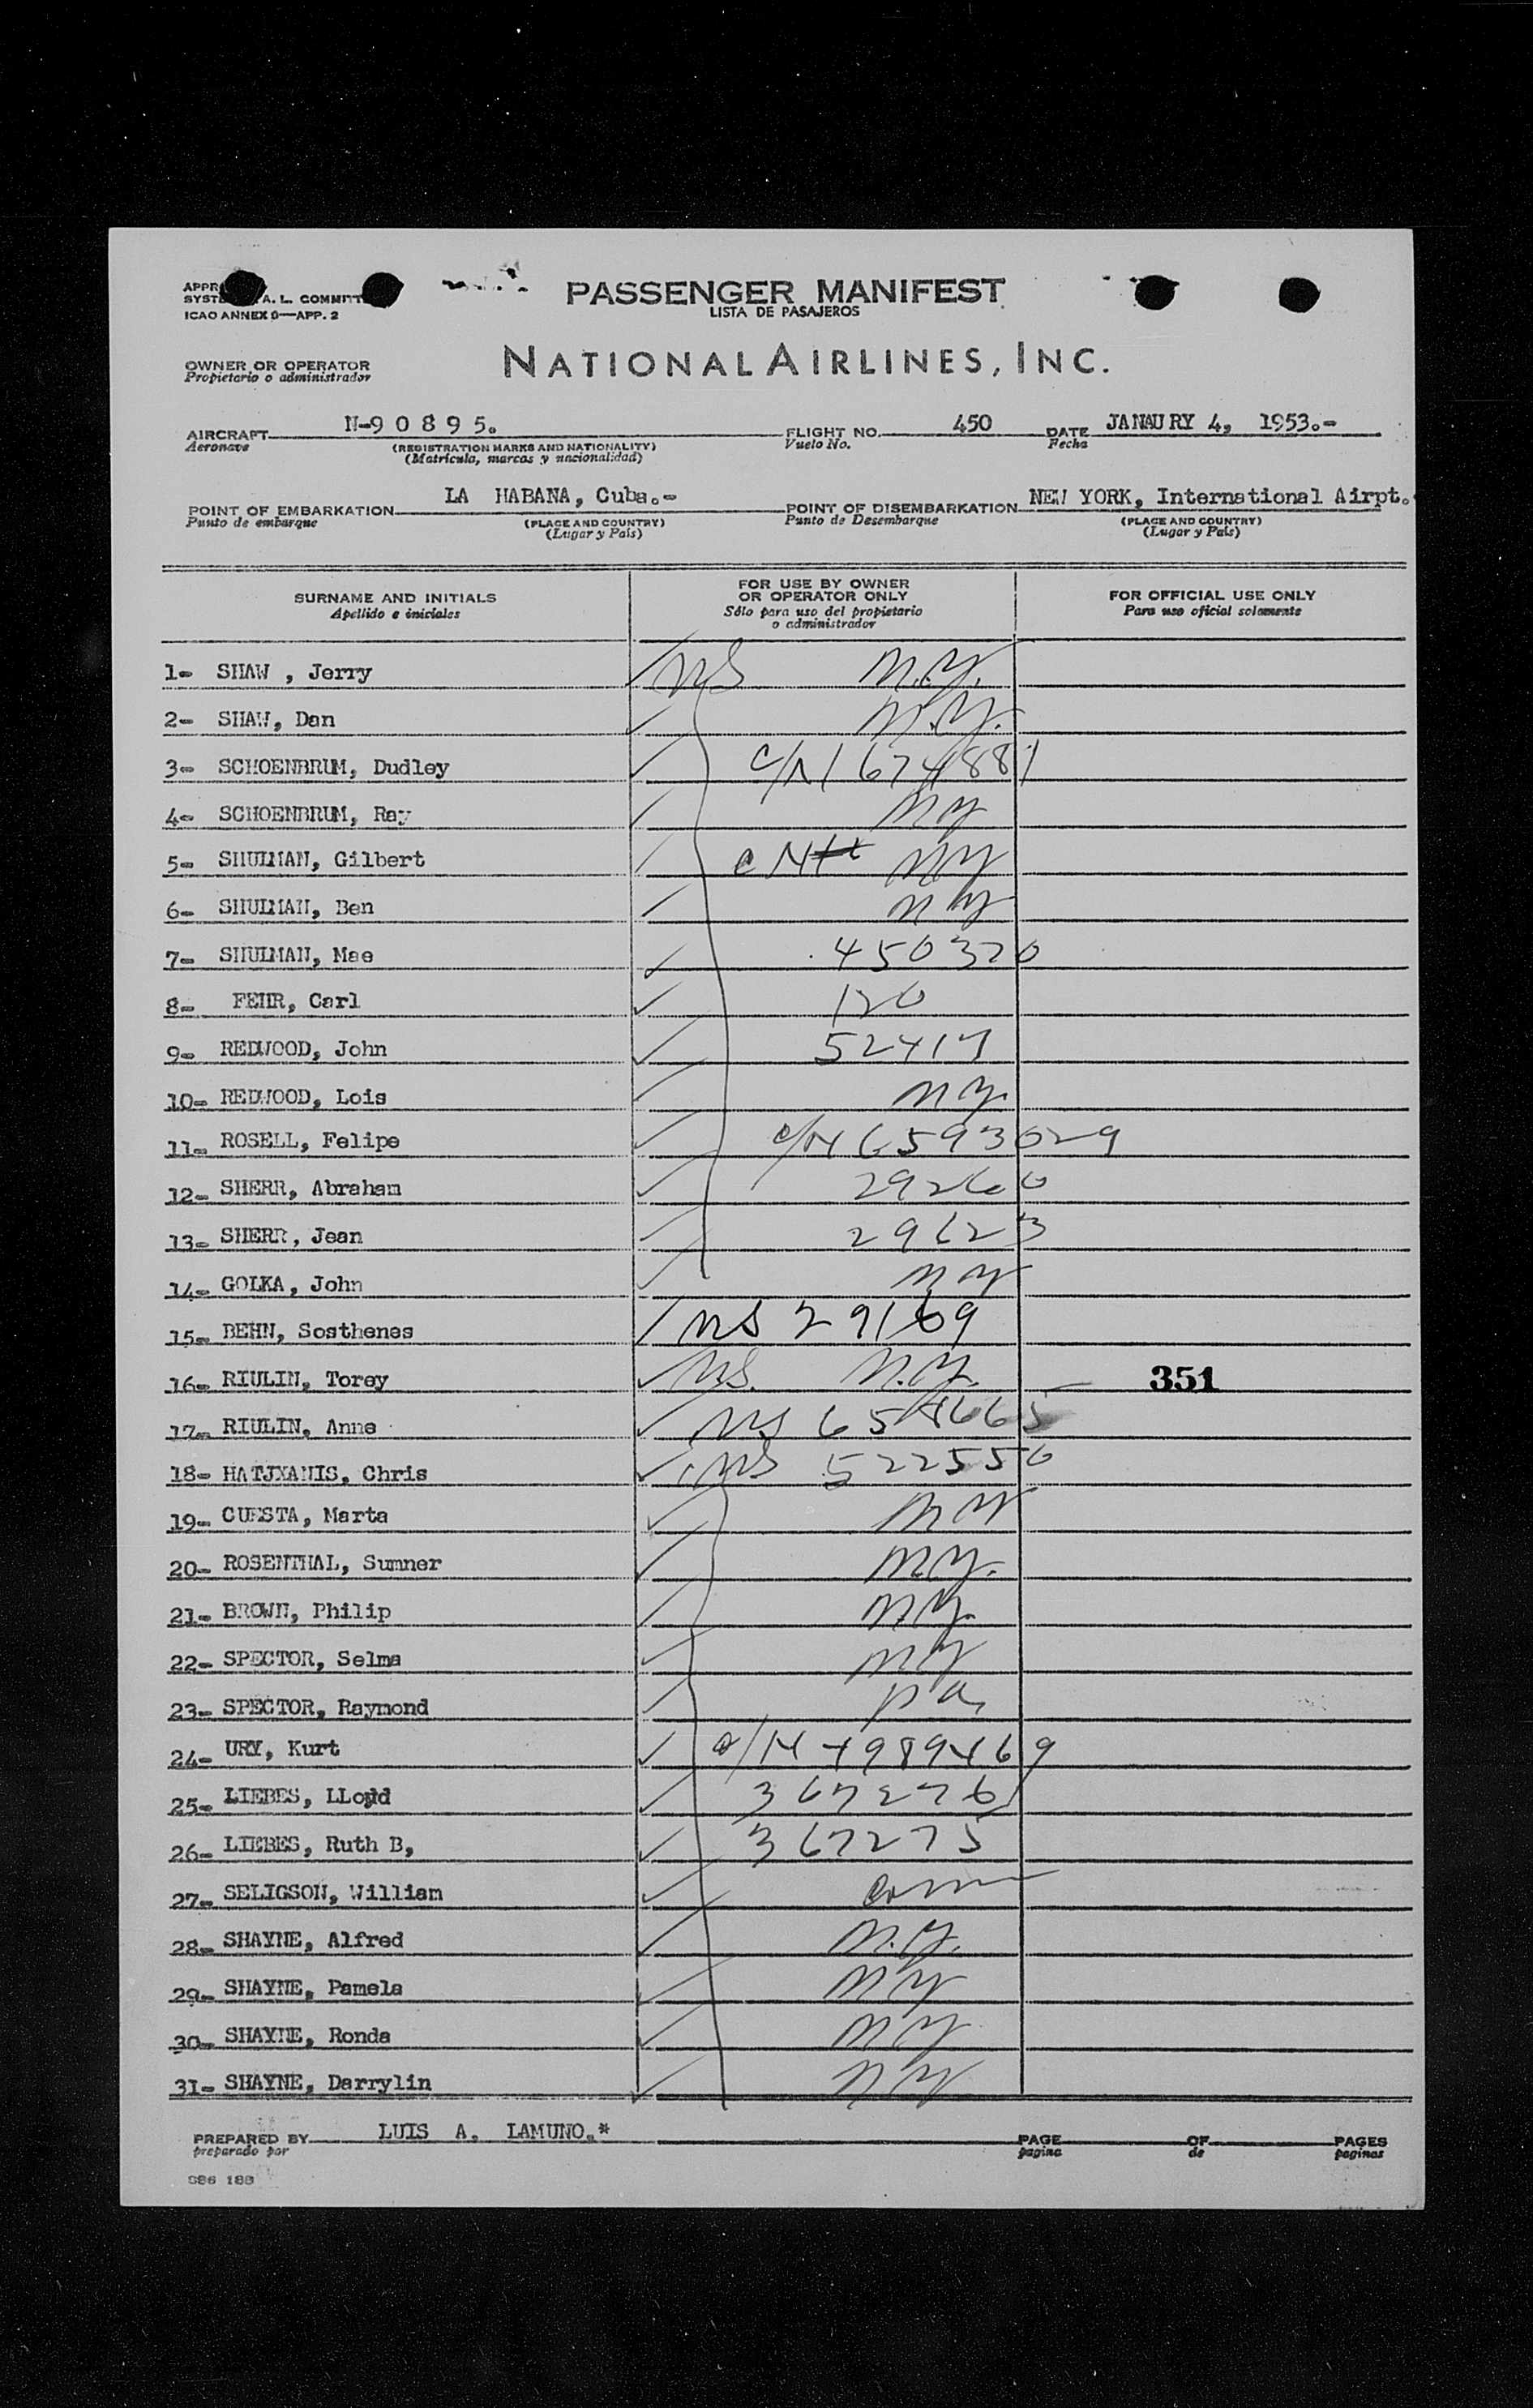 PASSENGER MANIFEST
LISTA DE PASAJEROS
A. L.
ICAO ANNEX 9—APP. 2
OWNER OR OPERATOR
Propietario o administrador
NATIONAL AIRLINES, INC.
AIRCRAFT N-9 0 8 9 5. FLIGHT NO. 450 DATE JANAURY 4, 1953.-
Aeronave (REGISTRATION MARKS AND NATIONALITY) Vuelo No. Fecha
(Matrícula, marcas y nacionalidad)
POINT OF EMBARKATION LA HABANA, Cuba.- POINT OF DISEMBARKATION NEW YORK, International Airpt.
Punto de embarque (PLACE AND COUNTRY) Punto de Desembarque (PLACE AND COUNTRY)
(Lugar y País) (Lugar y País)
SURNAME AND INITIALS FOR USE BY OWNER OR OPERATOR ONLY FOR OFFICIAL USE ONLY
Apellido e iniciales Sólo para uso del propietario o administrador Para uso oficial solamente
1- SHAW , Jerry N.Y.
2- SHAW, Dan N.Y.
3- SCHOENBRUM, Dudley
4- SCHOENBRUM, Ray NY
5- SHULMAN, Gilbert NY
6- SHULMAN, Ben NY
7- SHULMAN, Mae 450320
8- FEHR, Carl 120
9- REDWOOD, John 52417
10- REDWOOD, Lois NY.
11- ROSELL, Felipe C/N 6593029
12- SHERR, Abraham 29260
13- SHERR, Jean 29623
14- GOLKA, John NY
15- BEHN, Sosthenes 29169
16- RIULIN, Torey N.Y. 351
17- RIULIN, Anne
18- HATJXANIS, Chris 522550
19- CUESTA, Marta NY
20- ROSENTHAL, Sumner N.Y.
21- BROWN, Philip N.Y.
22- SPECTOR, Selma NY
23- SPECTOR, Raymond Pa,
24- URY, Kurt
25- LIEBES, LLoyd 367276
26- LIEBES, Ruth B, 367275
27- SELIGSON, William Conn
28- SHAYNE, Alfred N.Y.
29- SHAYNE, Pamela NY
30- SHAYNE, Ronda NY
31- SHAYNE, Darrylin NY
PREPARED BY LUIS A. LAMUNO.* PAGE OF PAGES
preparado por pagina de paginas